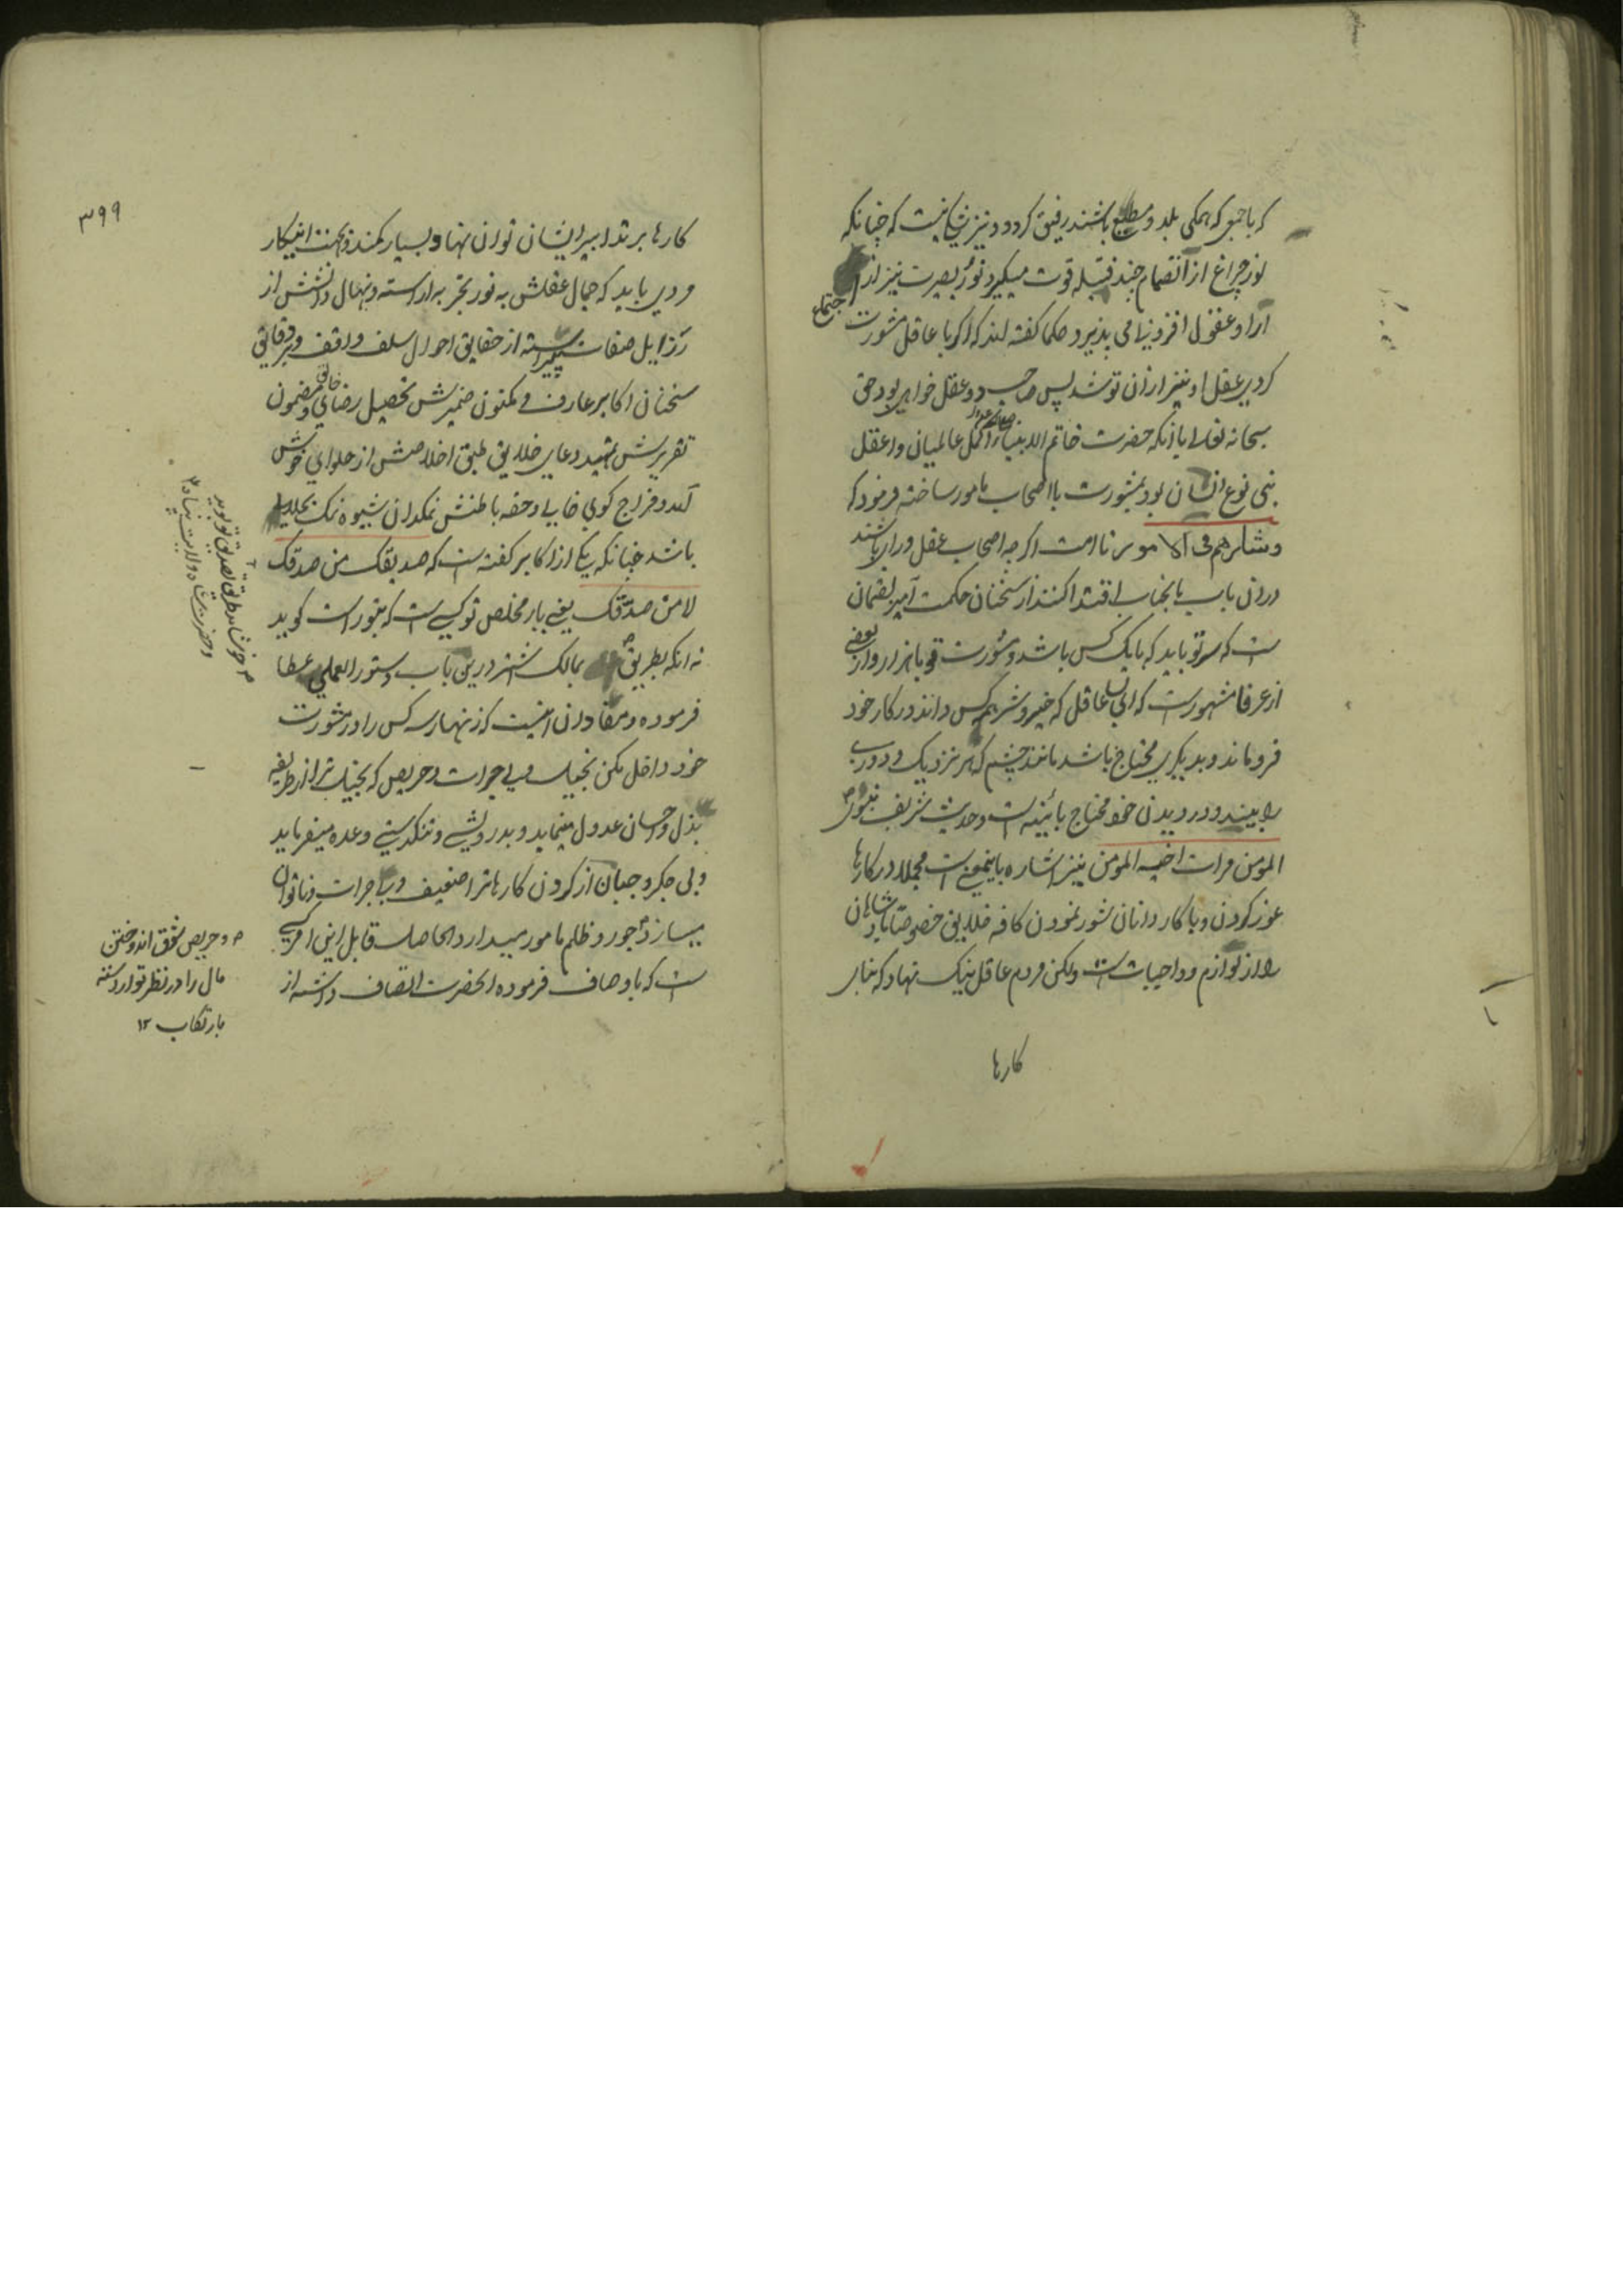 که با جمعی که همگی بلد و مطیع باشند رفیق گردد و نیز شک نیست که چنانکه
نور چراغ از انضمام چند فتیله قوت میگیرد نور بصیرت نیز از اجتماع
آرا و عقول افزونی می پذیرد و حکما گفته اند که اگر با عاقل مشورت
کردی عقل او نیز ازان تو شد پس صاحب دو عقل خواهی بود حق
سبحانه تعالی با آنکه حضرت خاتم الانبیاء اکمل عالمیان و اعقل
بنی نوع انسان بود بمشورت با اصحاب مامور ساخته فرمود که
وشاورهم فی الامر تا امت اگرچه اصحاب عقل و رای باشند
دران باب بآنجناب اقتدا کنند از سخنان حکمت آمیز لقمان
است که سر تو باید که با یک کس باشد و مشورت تو با هزار و از بعضی
از عرفا مشهور است که ای بسا عاقل که خیر و شر همه کس داند در کار خود
فرو ماند و بدیگری محتاج باشد مانند چشم که هر نزدیک و دور
را بیند و در دیدن خود محتاج بآئینه است و حدیث شریف نبوی
المومن مرات اخیه المومن نیز اشاره باینمعنی است مجملا در کارها
غور کردن و با کار دانان شور نمودن کافه خلایق خصوصا پادشاهان
را از لوازم و واجبات است ولکن مردم عاقل نیک نهاد که بنای
کارها
۳۹۹
کارها بر تدابیر ایشان توان نهاد بسیار کمند و جهت اینکار
مردی باید که جمال عقلش به نور تجربه آراسته و نهال دانشش از
رذایل صفات پیراسته از حقایق احوال سلف واقف و بر دقایق
سخنان اکابر عارف و مکنون ضمیرش تحصیل رضای خالق و مضمون
تقریرش تمهید دعای خلایق طبق اخلاصش از حلوای خوش
آمد و مزاج گوئی خالی و حقه باطنش نمکدان شیوه نمک بحلالی
باشد چنانکه یکی از اکابر گفته است که صدیقک من صدقک
لا من صدّقک یعنی یار مخلص تو کسی است که بتو راست گوید
نه آنکه بطریق بمالک اشتر درین باب دستور العملی عطا
فرموده و مفاد آن اینست که زنهار سه کس را در مشورت
خود داخل مکن بخیل و بی جرات و حریص که بخیل ترا از طریقه
بذل و احسان عدول مینماید و بدرویشی و تنگدستی وعده میفرماید
و بی جگر و جبان از کردن کارها ترا ضعیف و بی جرات و ناتوان
میسازد و جور و ظلم مامور میدارد الحاصل قابل این امر کسی
است که باوصاف فرموده آنحضرت اتصاف داشته از
خوشامد طریق تصدیق تو پوید
و حضرت شاه ولایت پناه
و حریص شوق اندوختن
مال را در نظر تو آراسته
بارتکاب ۱۲